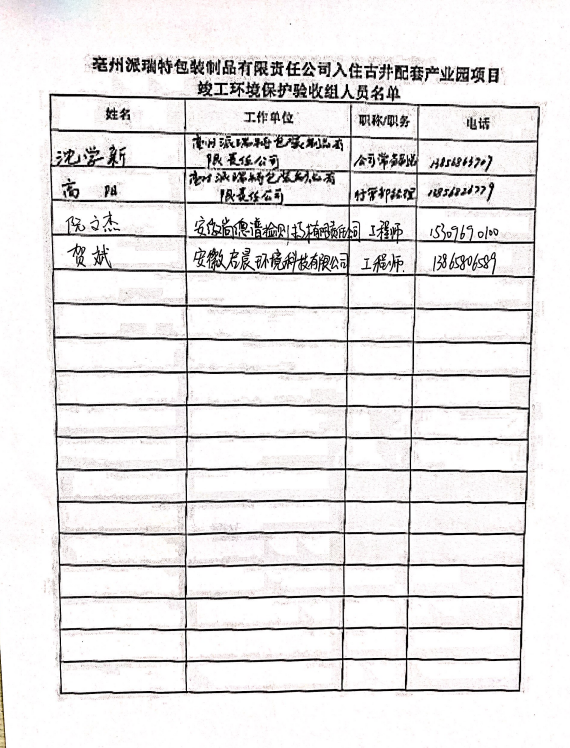 亳州派瑞特包装制品有限责任公司入住古井配套产业园项目
竣工环境保护验收组人员名单
姓名 工作单位 职称/职务 电话
沈学新 亳州派瑞特包装制品有限责任公司 公司常务副总
高阳 亳州派瑞特包装制品有限责任公司 行管部经理
阮文杰 安徽尚德谱检测技术有限责任公司 工程师 15309690100
贺斌 安徽启晨环境科技有限公司 工程师 13865806589